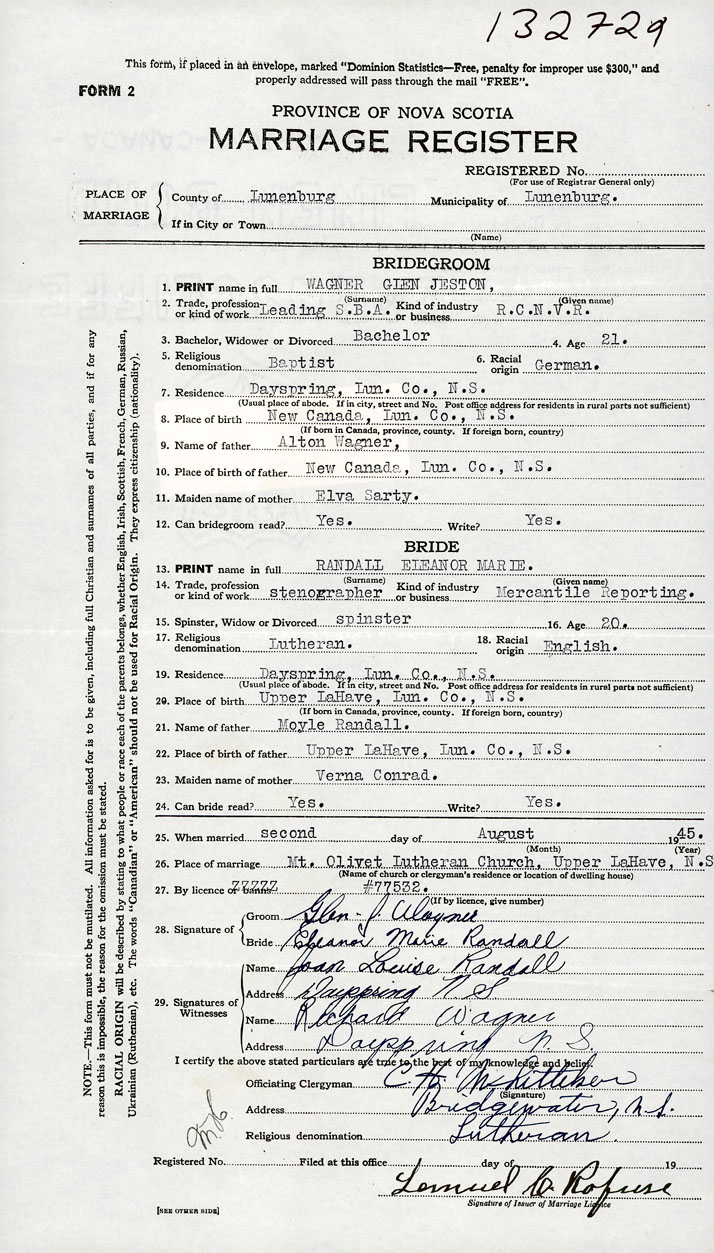 132729
This form, if placed in an envelope, marked "Dominion Statistics—Free, penalty for improper use $300," and
properly addressed will pass through the mail "FREE".
FORM 2
PROVINCE OF NOVA SCOTIA
MARRIAGE REGISTER
REGISTERED No.
(For use of Registrar General only)
PLACE OF MARRIAGE
County of Lunenburg Municipality of Lunenburg.
If in City or Town
(Name)
BRIDEGROOM
1. PRINT name in full WAGNER GLEN JESTON,
(Surname) (Given name)
2. Trade, profession or kind of work Leading S.B.A. Kind of industry or business R.C.N.V.R.
3. Bachelor, Widower or Divorced Bachelor 4. Age 21.
5. Religious denomination Baptist 6. Racial origin German.
7. Residence Dayspring, Lun. Co., N.S.
(Usual place of abode. If in city, street and No. Post office address for residents in rural parts not sufficient)
8. Place of birth New Canada, Lun. Co., N.S.
(If born in Canada, province, county. If foreign born, country)
9. Name of father Alton Wagner,
10. Place of birth of father New Canada, Lun. Co., N.S.
11. Maiden name of mother Elva Sarty.
12. Can bridegroom read? Yes. Write? Yes.
BRIDE
13. PRINT name in full RANDALL ELEANOR MARIE.
(Surname) (Given name)
14. Trade, profession or kind of work stenographer Kind of industry or business Mercantile Reporting.
15. Spinster, Widow or Divorced spinster 16. Age 20.
17. Religious denomination Lutheran. 18. Racial origin English.
19. Residence Dayspring, Lun. Co., N.S.
(Usual place of abode. If in city, street and No. Post office address for residents in rural parts not sufficient)
20. Place of birth Upper LaHave, Lun. Co., N.S.
(If born in Canada, province, county. If foreign born, country)
21. Name of father Moyle Randall.
22. Place of birth of father Upper LaHave, Lun. Co., N.S.
23. Maiden name of mother Verna Conrad.
24. Can bride read? Yes. Write? Yes.
25. When married second day of August 1945.
(Month) (Year)
26. Place of marriage Mt. Olivet Lutheran Church, Upper LaHave, N.S
(Name of church or clergyman's residence or location of dwelling house)
27. By licence or banns ZZZZZ #77532.
(If by licence, give number)
28. Signature of
Groom Glen J. Wagner
Bride Eleanor Marie Randall
29. Signatures of Witnesses
Name Joan Louise Randall
Address Dayspring N.S
Name Richard Wagner
Address Dayspring N.S.
I certify the above stated particulars are true to the best of my knowledge and belief.
Officiating Clergyman
(Signature)
Address Bridgewater, N.S.
Religious denomination Lutheran.
Registered No. Filed at this office day of 19
Lemuel C. Rofuse
Signature of Issuer of Marriage Licence
[SEE OTHER SIDE]
NOTE.—This form must not be mutilated. All information asked for is to be given, including full Christian and surnames of all parties, and if for any
reason this is impossible, the reason for the omission must be stated.
RACIAL ORIGIN will be described by stating to what people or race each of the parents belongs, whether English, Irish, Scottish, French, German, Russian,
Ukrainian (Ruthenian), etc. The words "Canadian" or "American" should not be used for Racial Origin. They express citizenship (nationality).